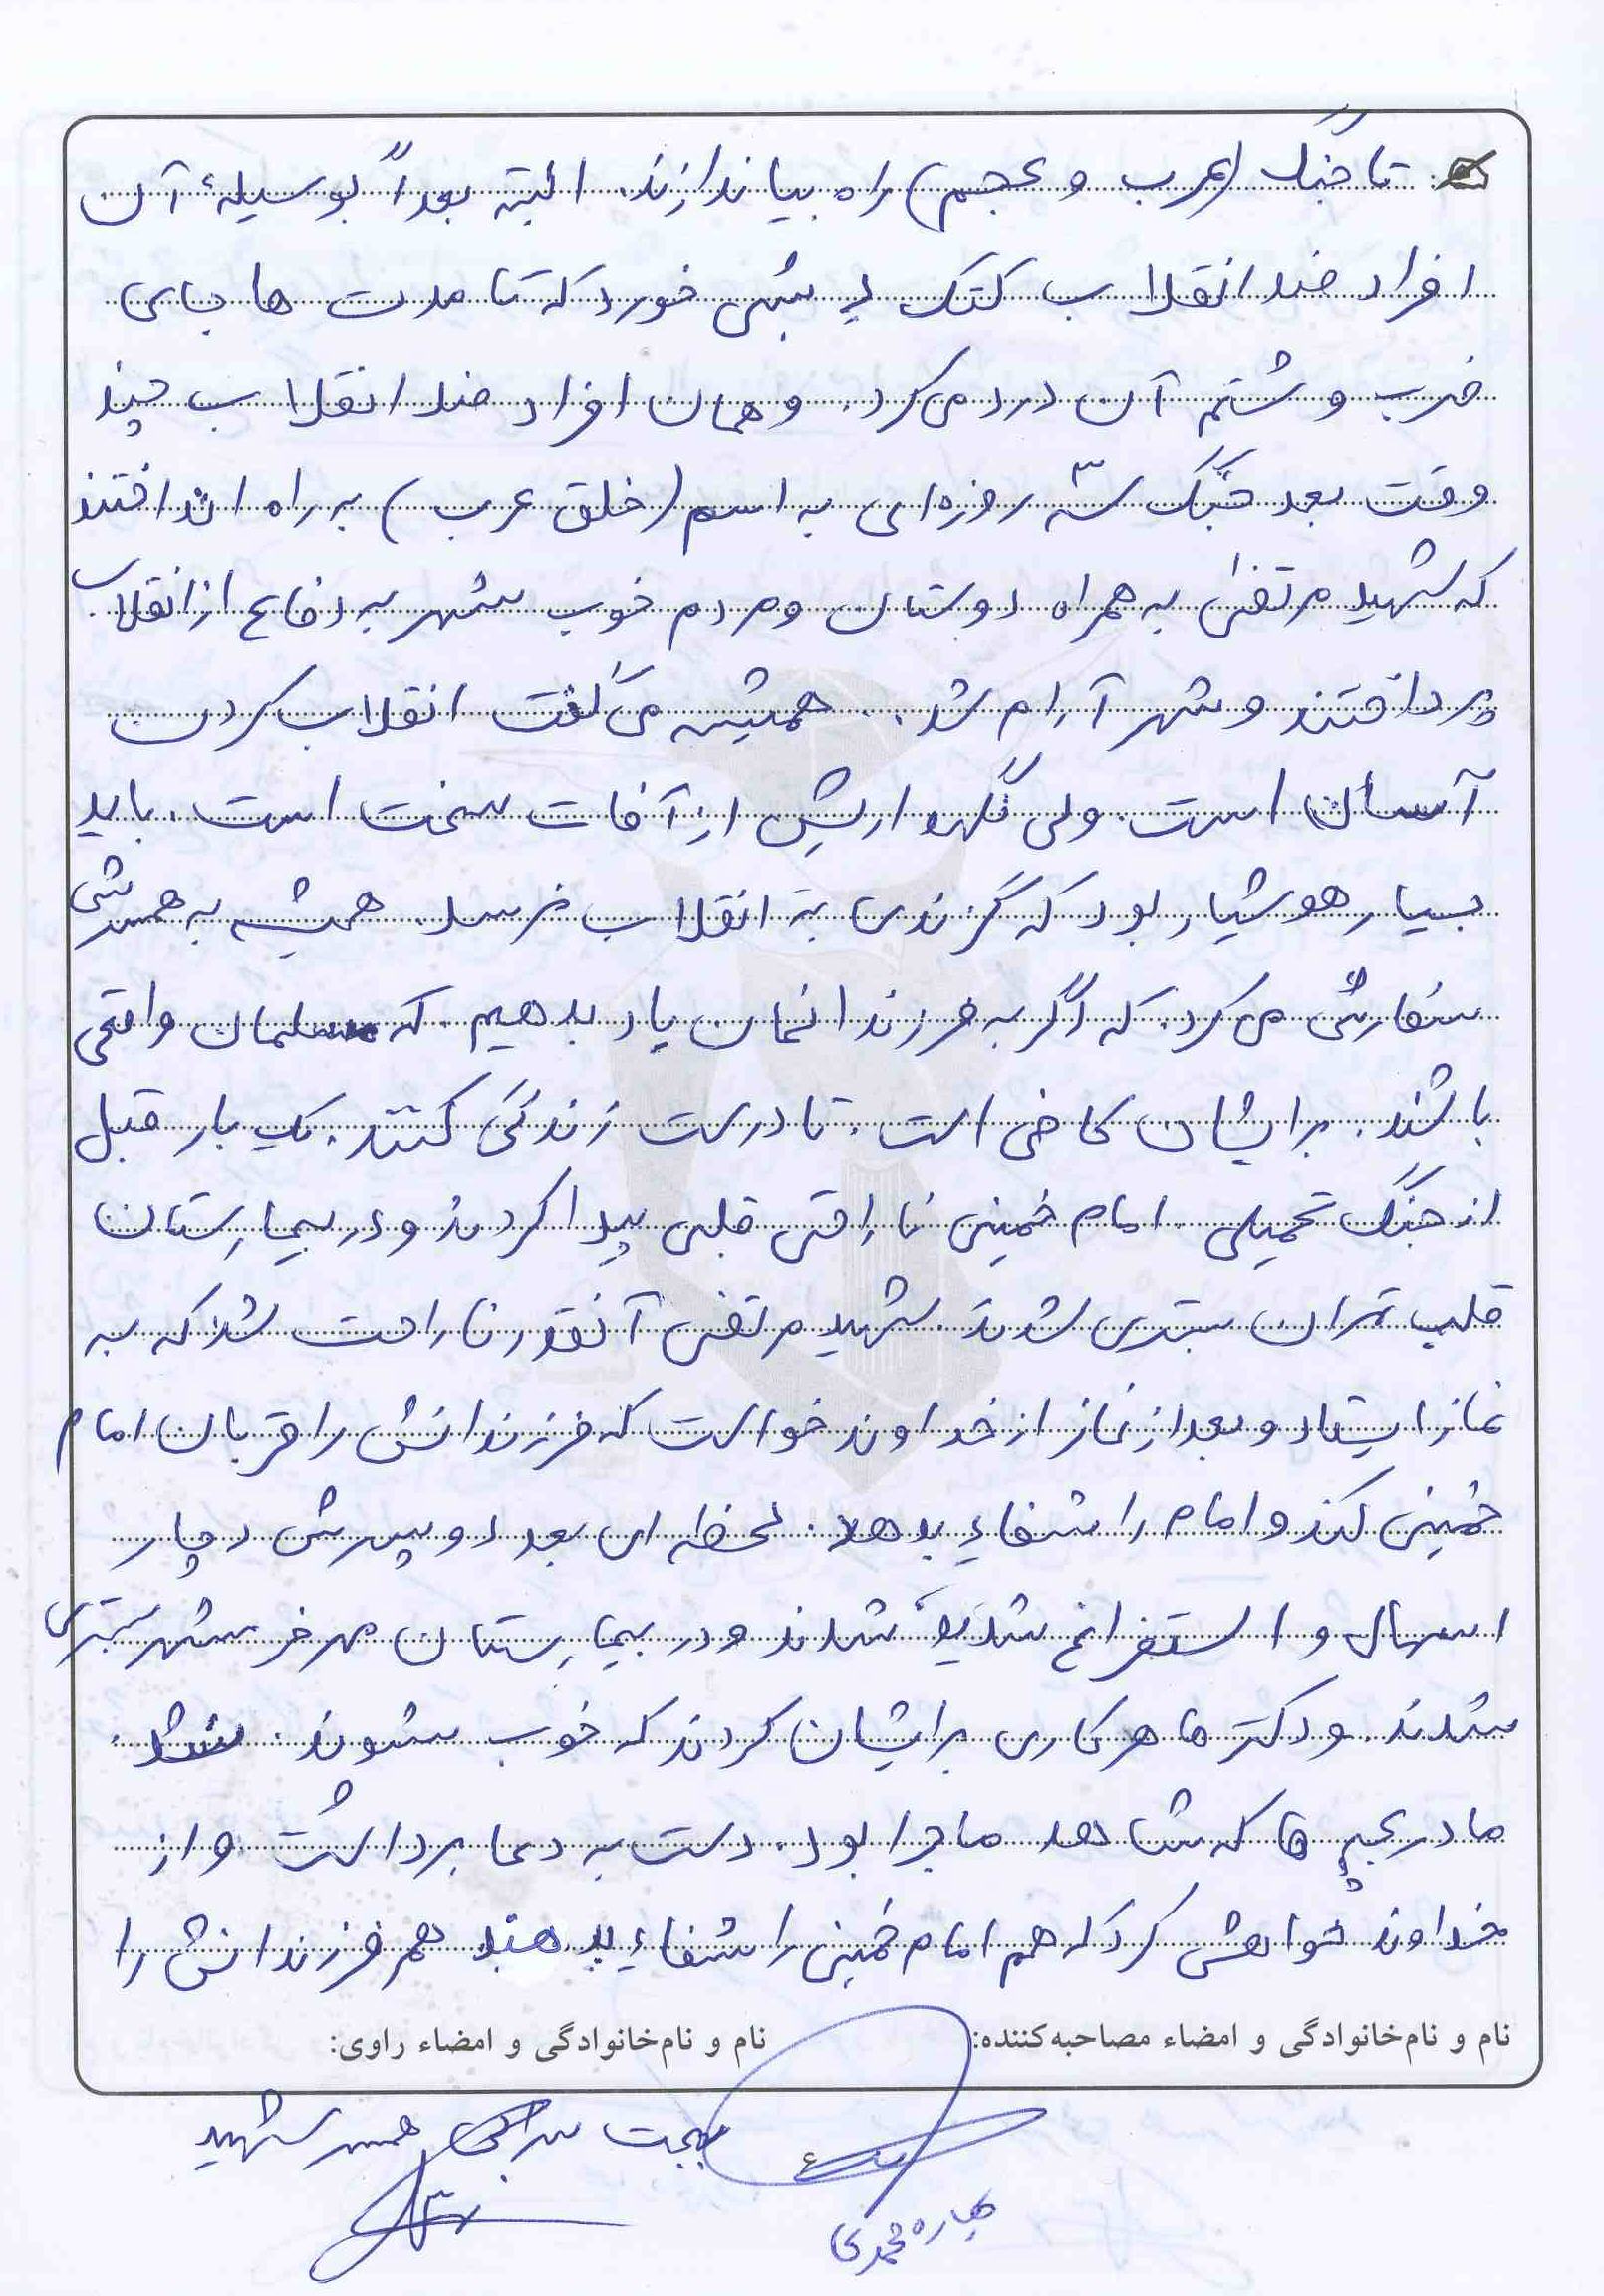 تا جنگ (عرب و عجم) راه بیاندازند. البته بعداً بوسیلهٔ آن
افراد ضد انقلاب کتک خورد که تا مدت ها جای
ضرب و شتم آن درد می‌کرد. و همان افراد ضد انقلاب چند
وقت بعد جنگ سه روزه‌ای به اسم (خلق عرب) به راه انداختند
که شهید مرتضی به همراه دوستان و مردم خوب شهر به دفاع از انقلاب
پرداختند و شهر آرام شد. همیشه می‌گفت انقلاب کردن
آسان است ولی نگهداریش از آفات سخت است. باید
بسیار هوشیار بود که گزندی به انقلاب نرسد. همیشه به همسرش
سفارش می‌کرد که اگر به فرزندانمان یاد بدهیم که مسلمان واقعی
باشند. برایشان کافی است. تا درست زندگی کنند. یک بار قبل
از جنگ تحمیلی امام خمینی ناراحتی قلبی پیدا کردند و در بیمارستان
قلب تهران بستری شدند. شهید مرتضی آنقدر ناراحت شد که به
نماز ایستاد و بعد از نماز از خداوند خواست که فرزندانش را قربان امام
خمینی کند و امام را شفاء بدهد. لحظه ای بعد دو پسرش دچار
اسهال و استفراغ شدید شدند و در بیمارستان مهر خرمشهر بستری
شدند. و دکترها هر کاری برایشان کردند که خوب شوند. نشد.
مادر بچه ها که شاهد ماجرا بود. دست به دعا برداشت و از
خداوند خواهش کرد که هم امام خمینی را شفاء بدهند هم فرزندانش را
نام و نام‌خانوادگی و امضاء مصاحبه‌کننده:
نام و نام‌خانوادگی و امضاء راوی:
بهجت همسر شهید
محمدی